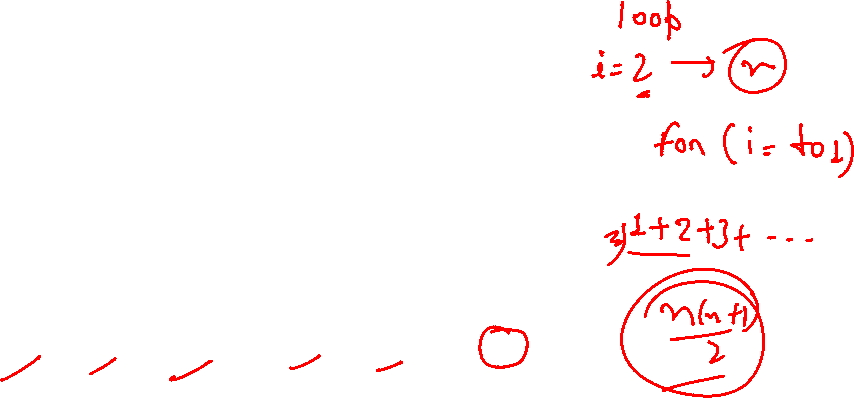 loop
i = 2 → n
for (i = to 1)
3) 1 + 2 + 3 + ....
n(n+1)
2